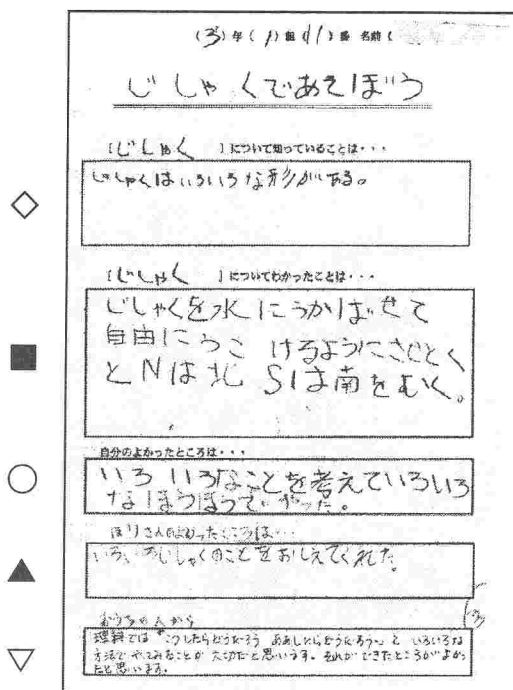 (3)年(1)組 41 番 名前(
じしゃくであそぼう
[じしゃく ]について知っていることは・・・
じしゃくはいろいろな形がある。
[じしゃく ]についてわかったことは・・・
じしゃくを水にうかばせて
自由にうご けるようにさせとく
とNは北 Sは南をむく。
自分のよかったところは・・・
いろ いろなことを考えていろいろ
なほうほうでやった。
ほりさんのよかったところは…
いろいろじしゃくのことをおしえてくれた。
おうちの人から
理科では "こうしたらどうだろう ああしたらどうだろう〜" と いろいろな
方法で やってみることが 大切だと思います。それが できたところが よかっ
たと思います。